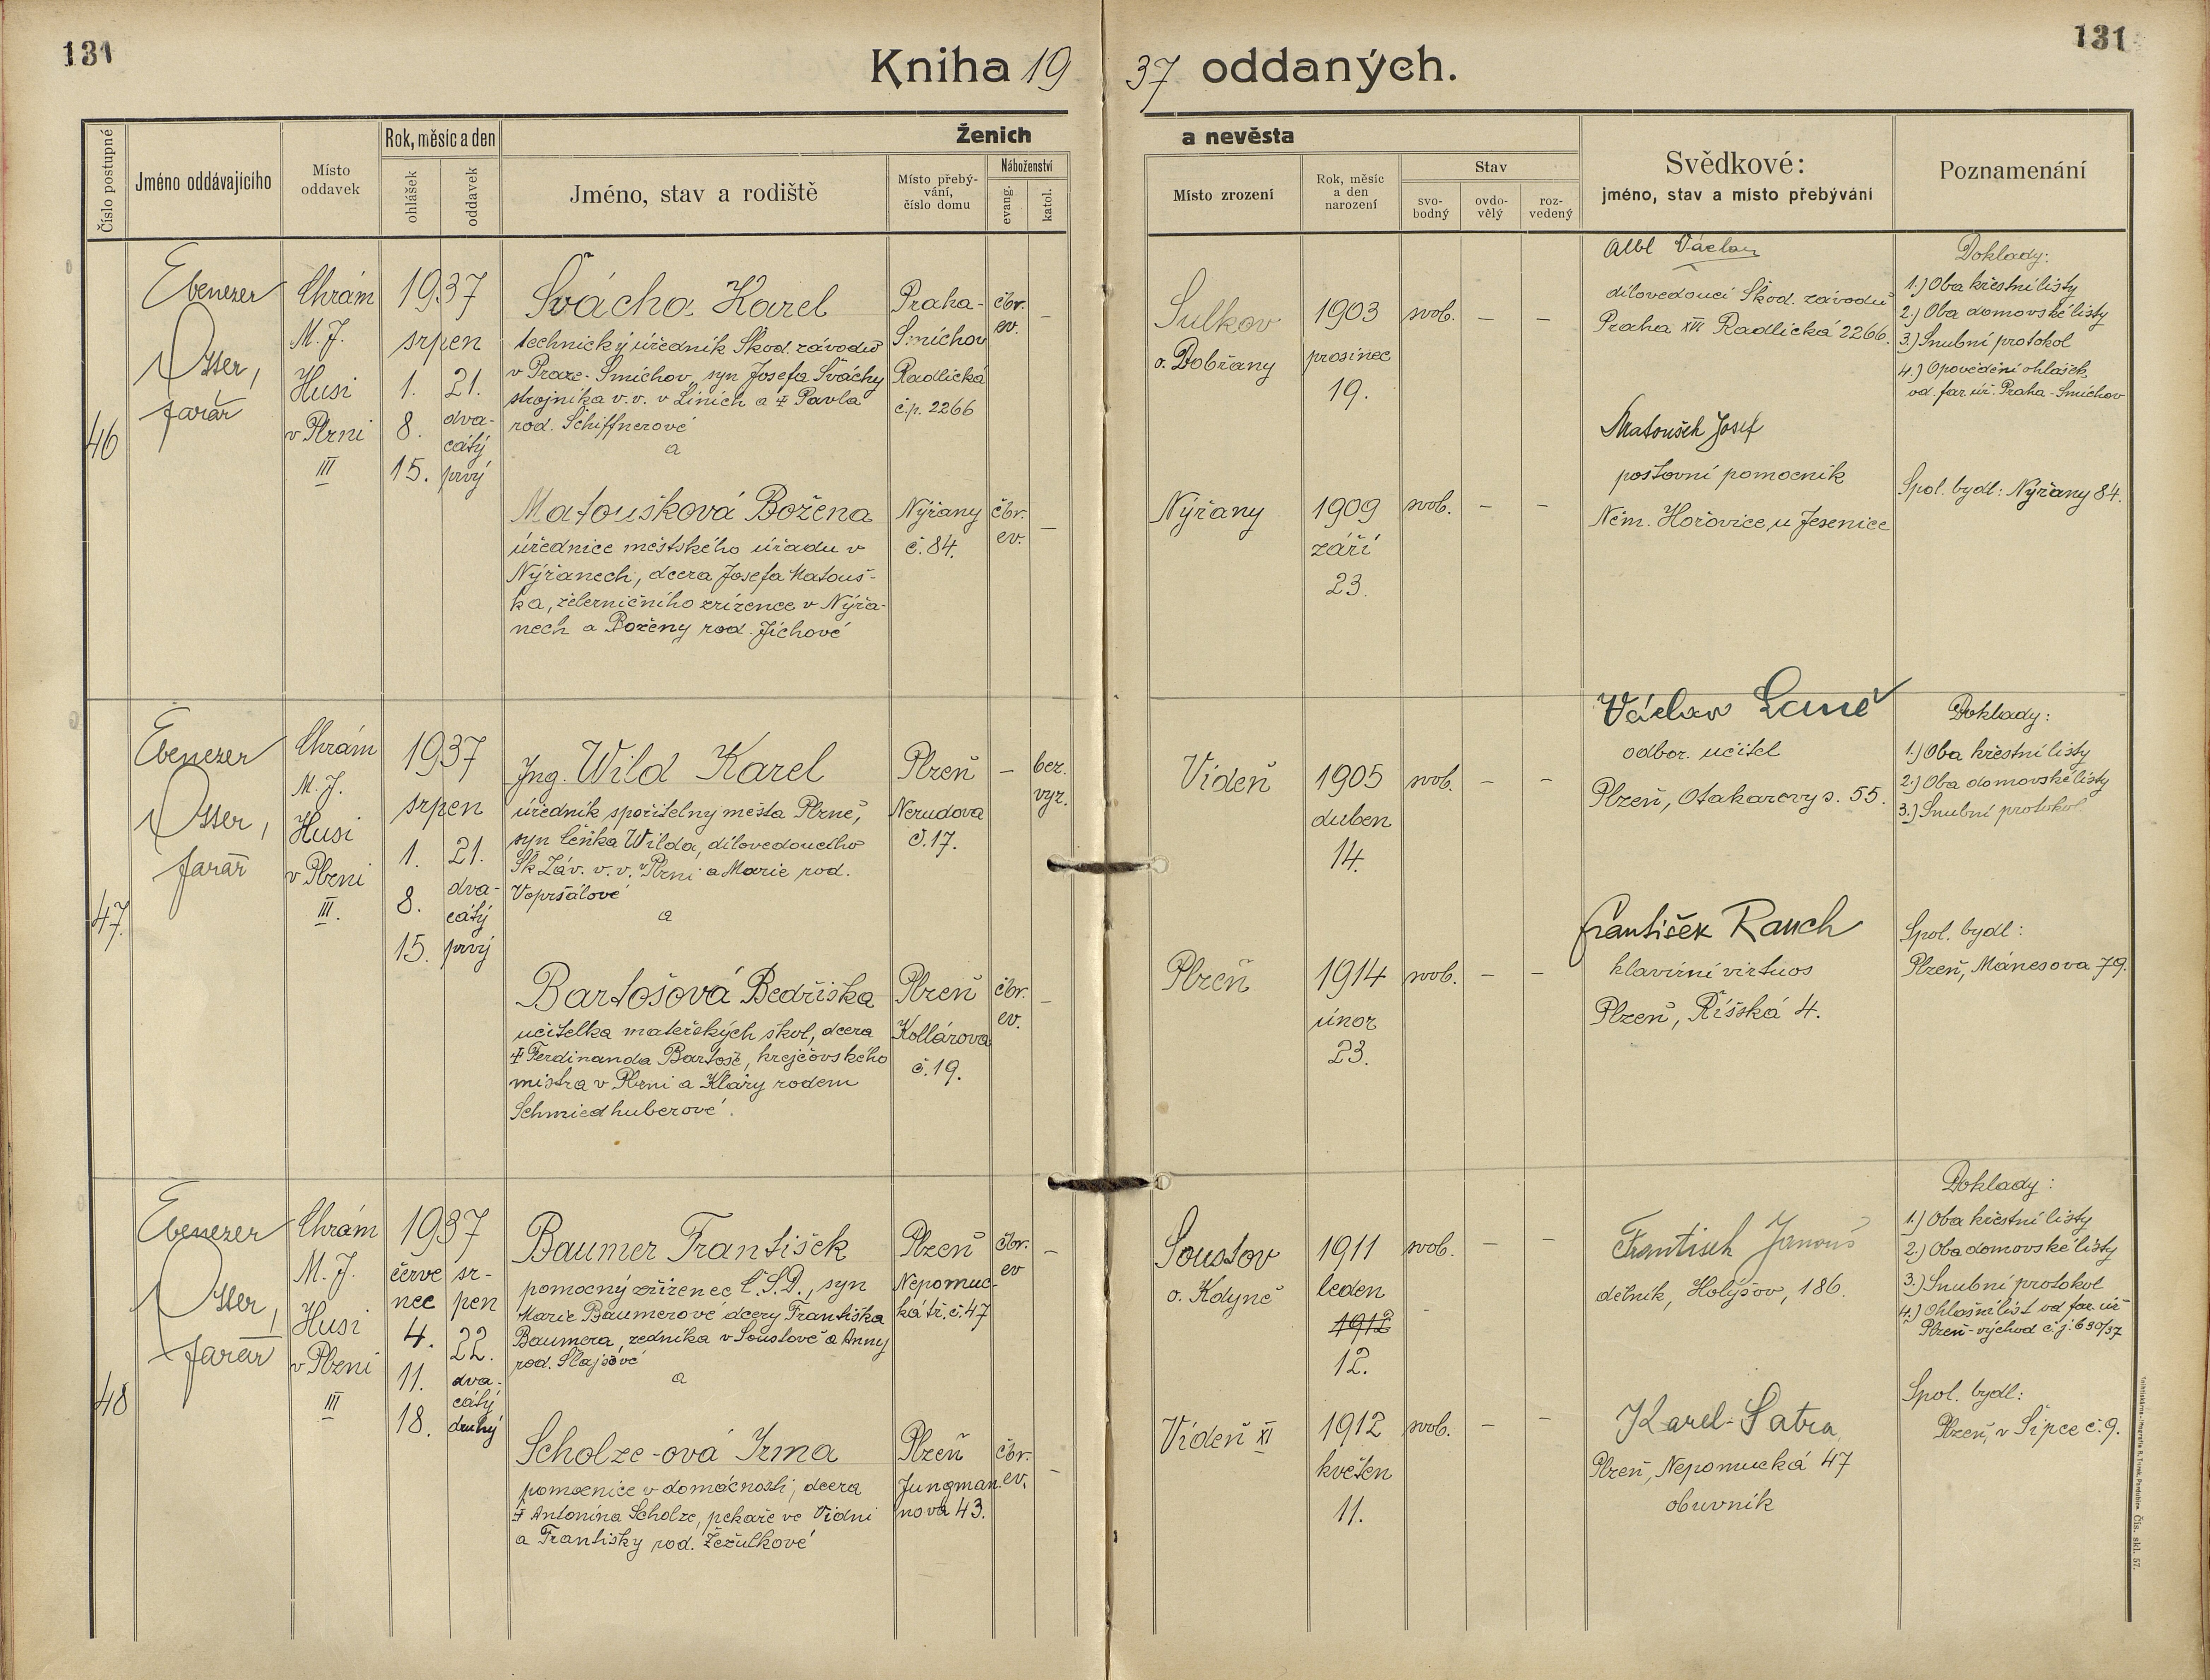 131
131
Kniha 1937 oddaných.
Číslo postupné
Jméno oddávajícího
Místo oddavek
Rok, měsíc a den
ohlášek
oddavek
Ženich
a nevěsta
Jméno, stav a rodiště
Místo přebý-
vání,
číslo domu
Náboženství
evang.
katol.
Místo zrození
Rok, měsíc
a den
narození
Stav
svo-
bodný
ovdo-
vělý
roz-
vedený
Svědkové:
jméno, stav a místo přebývání
Poznamenání
46
Ebenezer
farář
Chrám
M. J.
Husi
v Plzni
III
1937
srpen
1.
8.
15.
21.
dva-
cátý
prvý
Švácha Karel
technický úředník Škod. závodů
v Praze-Smíchov, syn Josefa Šváchy
strojníka v.v. v Líních a ‡ Pavla
rod. Schiffnerové
a
Praha-
Smíchov
Radlická
č.p. 2266
čbr.
ev.
–
Sulkov
o. Dobřany
1903
prosinec
19.
svob.
–
–
Albl Václav
dílovedoucí Škod. závodů
Praha XVI Radlická 2266.
Doklady:
1.) Oba křestní listy
2.) Oba domovské listy
3.) Snubní protokol
4.) Opovědění ohlášek
od far. úř. Praha-Smíchov
Matoušková Božena
úřednice městského úřadu v
Nýřanech, dcera Josefa Matouš-
ka, železničního zřízence v Nýřa-
nech a Boženy rod. Jíchové
Nýřany
č. 84.
čbr.
ev.
–
Nýřany
1909
září
23.
svob.
–
–
Matoušek Josef
poštovní pomocník
Něm. Hořovice, u Jesenice
Spol. bydl: Nýřany 84.
47.
Ebenezer
farář
Chrám
M. J.
Husi
v Plzni
III.
1937
srpen
1.
8.
15.
21.
dva-
cátý
prvý
Ing. Wild Karel
úředník spořitelny města Plzně,
syn Čeňka Wilda, dílovedoucího
Šk. Záv. v.v. v Plzni a Marie rod.
Vopršálové
a
Plzeň
Nerudova
č. 17.
–
bez.
vyz.
Vídeň
1905
duben
14.
svob.
–
–
odbor. učitel
Plzeň, Otakarovy s. 55.
Doklady:
1.) Oba křestní listy
2.) Oba domovské listy
3.) Snubní protokol
Bartošová Bedřiška
učitelka mateřských škol, dcera
‡ Ferdinanda Bartoše, krejčovského
mistra v Plzni a Kláry rodem
Schmiedhuberové.
Plzeň
Kollárova
č. 19.
čbr.
ev.
–
Plzeň
1914
únor
23.
svob.
–
–
František Rauch
klavírní virtuos
Plzeň, Říšská 4.
Spol. bydl:
Plzeň, Mánesova 79.
48
Ebenezer
farář
Chrám
M. J.
Husi
v Plzni
III
1937
červe
nec
4.
11.
18.
sr-
pen
22.
dva-
cátý
druhý
Baumer František
pomocný zřízenec Č.S.D., syn
Marie Baumerové dcery Františka
Baumera, zedníka v Soustově a Anny
rod. Šlajsové
a
Plzeň
Nepomuc-
ká tř. č. 47
čbr.
ev
–
Soustov
o. Kdyně
1911
leden
1912
12.
svob.
–
–
František Janouš
dělník, Holýšov, 186.
Doklady:
1.) Oba křestní listy
2.) Oba domovské listy
3.) Snubní protokol
4.) Ohlašní list od far. úř.
Plzeň-východ č.j. 630/37
Scholze-ová Irma
pomocnice v domácnosti, dcera
‡ Antonína Scholze, pekaře ve Vídni
a Františky rod. Žežulkové
Plzeň
Jungman-
nova 43.
čbr.
ev.
–
Vídeň XI
1912
květen
11.
svob.
–
–
Karel Šatra
Plzeň, Nepomucká 47
obuvník
Spol. bydl:
Plzeň, v Šipce č. 9.